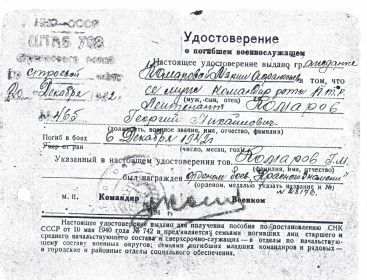 НКО-СССР
Удостоверение
о погибшем военнослужащем
Настоящее удостоверение выдано гр.
Комаровой Марии в том, что
её муж командир роты
(муж, сын, отец)
Лейтенант Комаров
Декабря
№ 465
Георгий Михайлович
(должность, военное звание, имя, отчество, фамилия)
Погиб в боях 6 Декабря 1942г
Умер от ран
(число, месяц, год)
Указанный в настоящем удостоверении тов. Комаров Г.М.
(фамилия, имя, отчество)
был награжден орденом Боев. Красное Знамени
(орденом, медалью указать название и №)
М. П. Командир Военком
Настоящее удостоверение выдано для получения пособия по постановлению СНК
СССР от 10 мая 1940 года № 742 и предъявляется семьями погибших лиц старшего и
среднего начальствующего состава и сверхсрочно-служащих — в отделы по начальству-
ющему составу военных округов, семьями погибших младших командиров и рядовых —
в городские и районные отделы социального обеспечения.